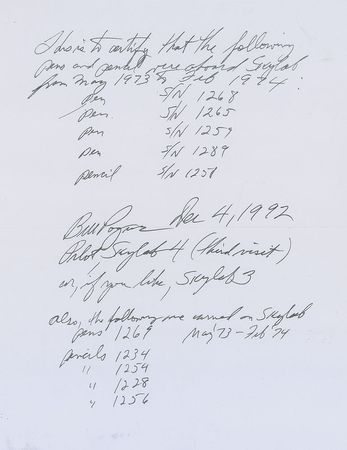 This is to certify that the following
pens and pencil were aboard Skylab
from May 1973 to Feb 1974:
pen S/N 1268
pen S/N 1265
pen S/N 1259
pen S/N 1289
pencil S/N 1258
Bill Pogue Dec 4, 1992
Pilot, Skylab 4 (third visit)
or, if you like, Skylab 3
also, the following were carried on Skylab
pens 1269 May '73 - Feb '74
pencils 1234
" 1254
" 1228
" 1256